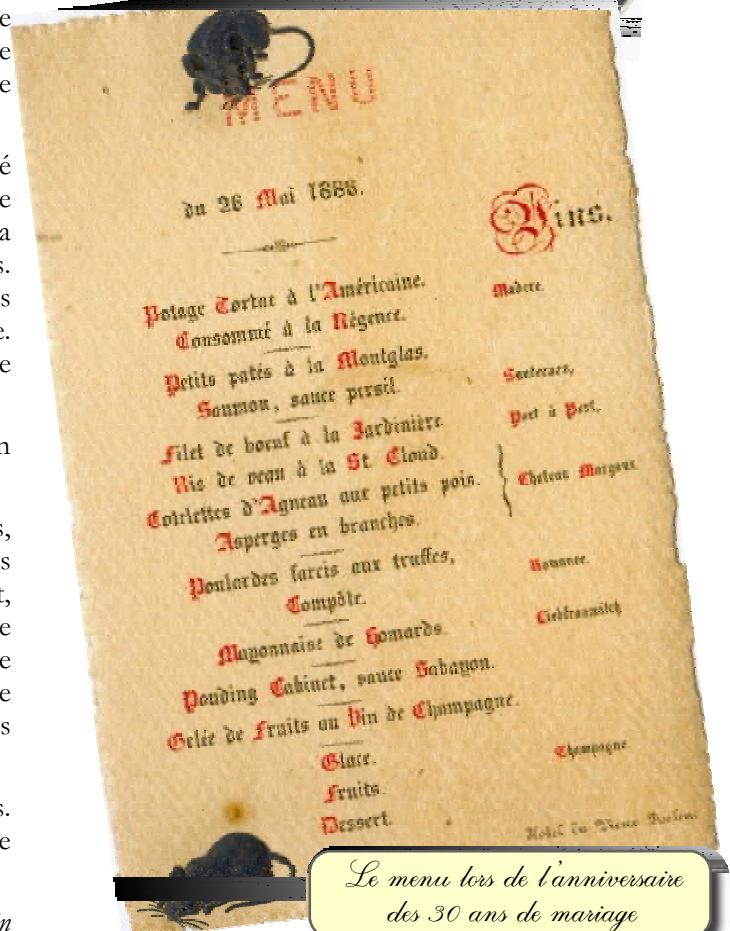 MENU
du 26 Mai
Potage Tortue à l'Américaine.
Consommé à la Régence.
Petits patés à la Montglas.
Saumon, sauce persil.
Filet de bœuf à la Jardinière
Ris de veau à la St. Cloud.
Cotelettes d'Agneau aux petits pois.
Asperges en branches.
Poulardes farcis aux truffes,
Compôte.
Mayonnaise de Homards.
Pouding Cabinet, sauce Sabayon.
Gelée de Fruits au Vin de Champagne.
Glace.
Fruits.
Dessert.
Vins.
Madère.
Sauternes,
Port à Port,
Chateau Margaux
Romanee.
Liebfraumilch
Champagne
Hotel du Vieux Doelen
Le menu lors de l'anniversaire
des 30 ans de mariage